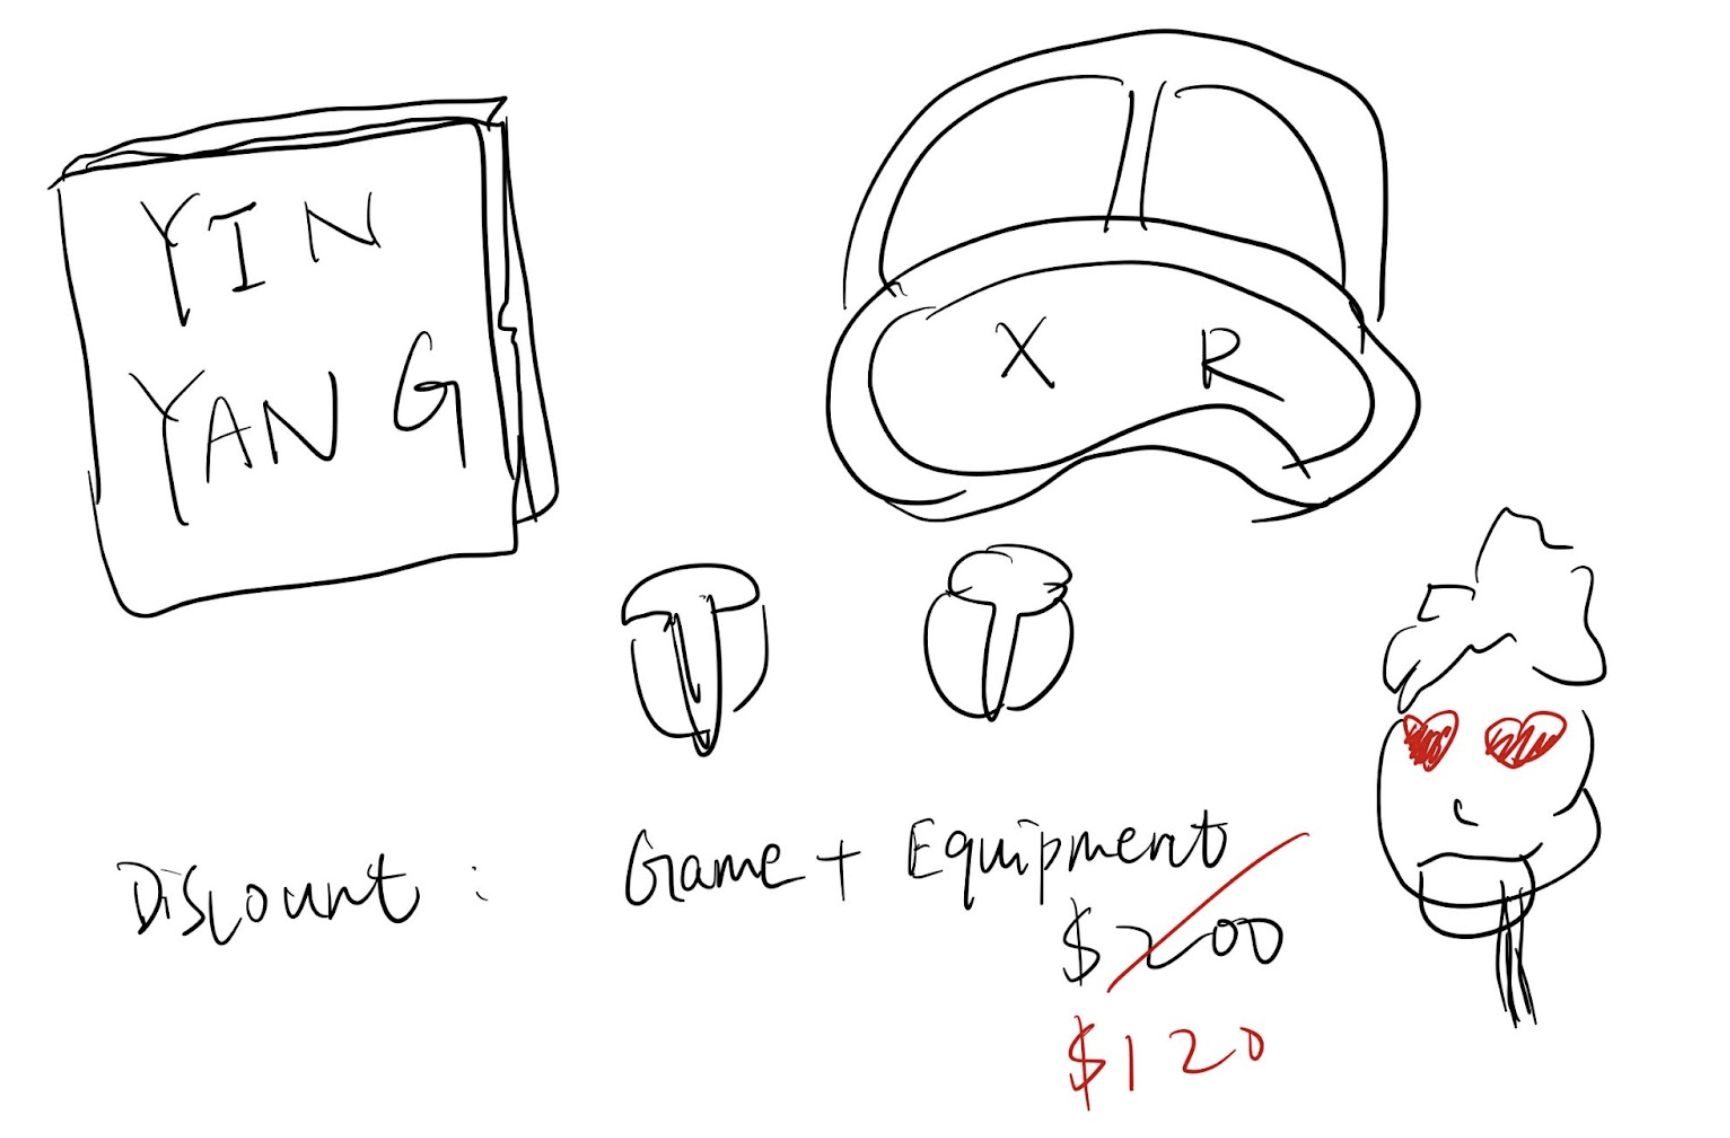 YIN
YANG
X R
Discount : Game + Equipment
$200
$120